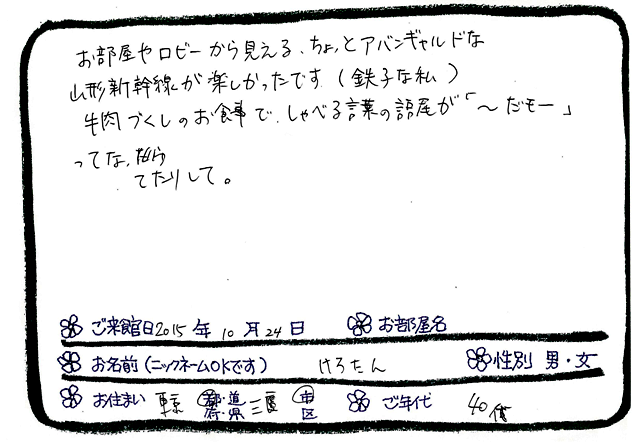 お部屋やロビーから見える、ちょっとアバンギャルドな
山形新幹線が楽しかったです（鉄子な私）
牛肉づくしのお食事で、しゃべる言葉の語尾が「〜だモー」
ってな
てたりして。
ご来館日2015年10月24日 お部屋名
お名前（ニックネームOKです） けろたん 性別 男・女
お住まい 東京 都道府県 三鷹 市区 ご年代 40代